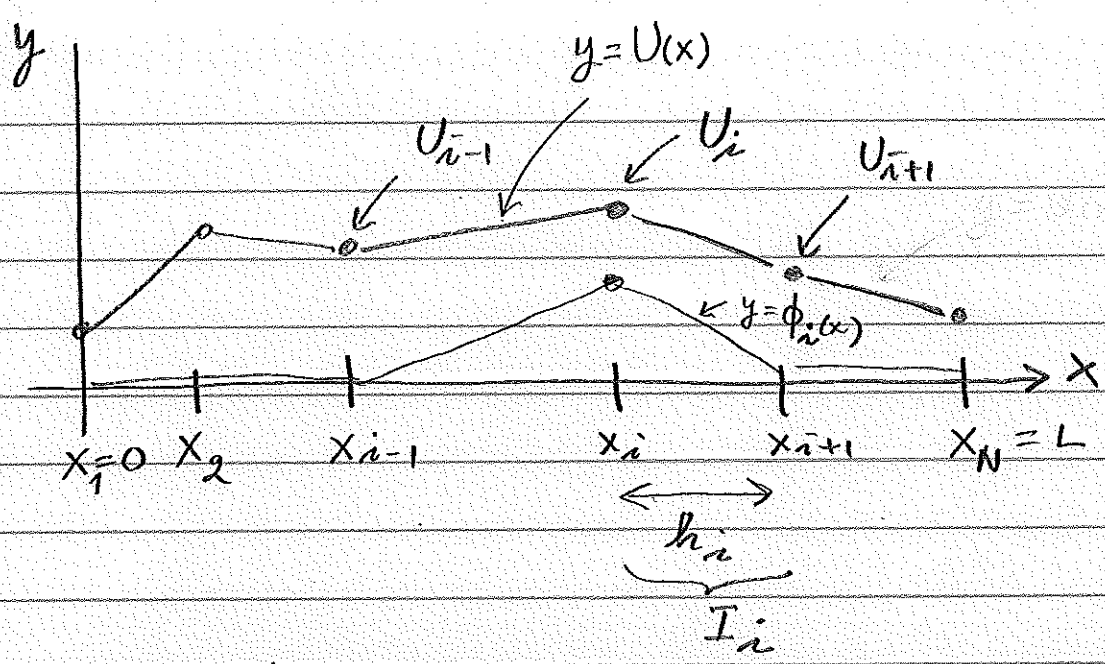 y
y = U(x)
U_{i-1}
U_i
U_{i+1}
y = ϕ_i(x)
x
x_1 = 0 x_2 x_{i-1} x_i x_{i+1} x_N = L
h_i
I_i